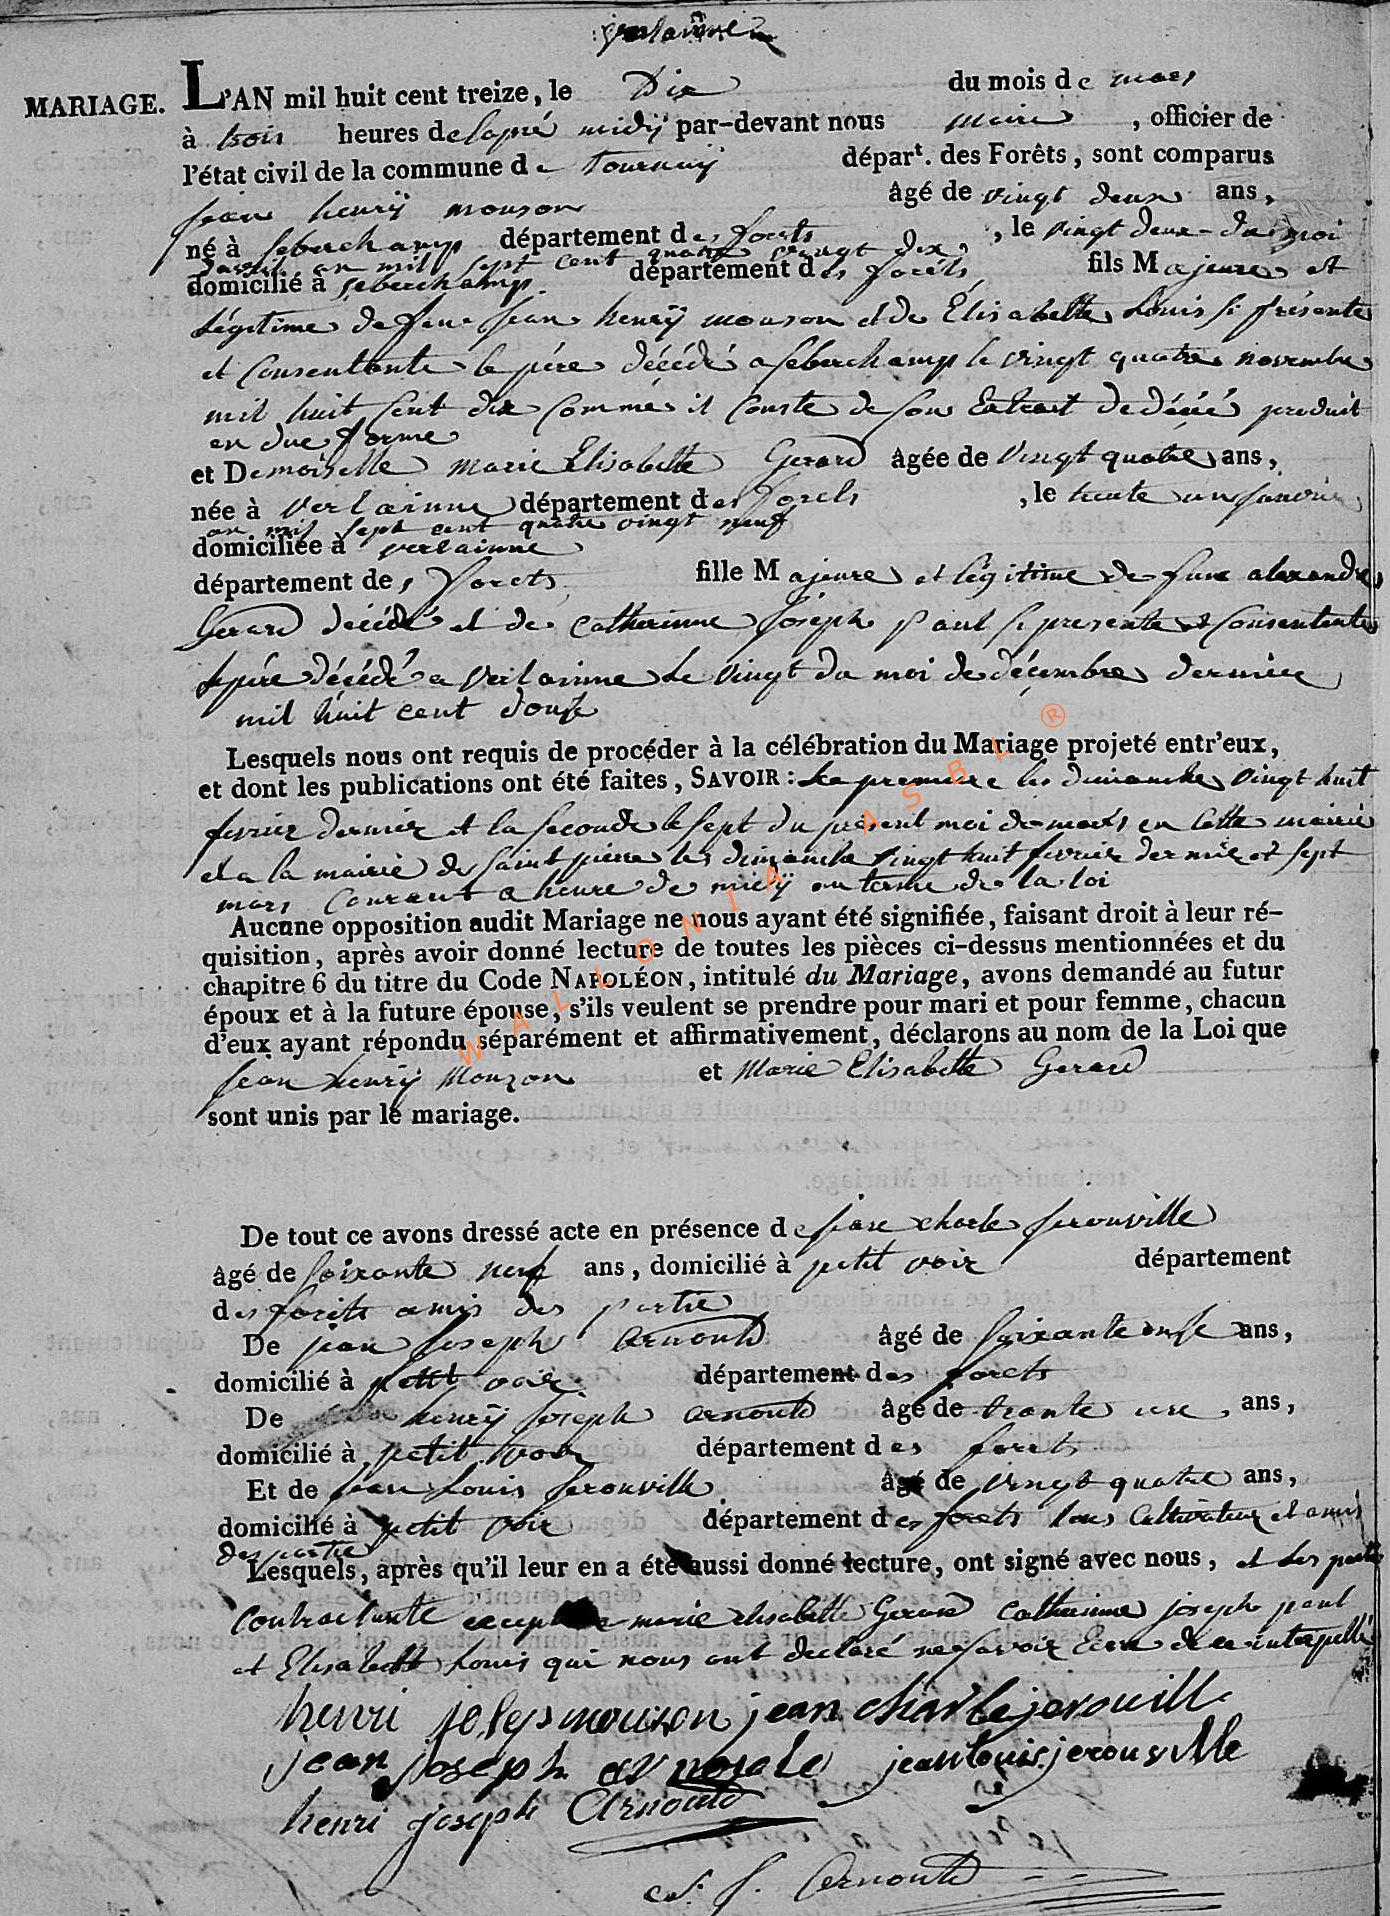 verlainne
MARIAGE. L'AN mil huit cent treize, le Dix du mois de mars
à trois heures de lapré midÿ par-devant nous maire, officier de
l'état civil de la commune de tournaÿ départ. des Forêts, sont comparus
jean henrÿ mouson âgé de vingt deux ans,
né à seberchamp département des forets, le vingt deux du moi
davril an mil sept cent quatre vingt dix,
domicilié à seberchamp. département des forets fils Majeure et
Légitime de feue jean henrÿ mouson et de Elisabette Louis si présente
et Consentente le père décédé a seberchamp le vingt quatre novembre
mil huit cent dix comme il Conste de son Extrait de décéé produit
en due forme
et Demoiselle marie Elisabette Gerard âgée de vingt quatre ans,
née à verlainne département des forets, le trente un janvier
an mil sept cent quatre vingt neuf
domiciliée à verlainne
département des forets fille Majeure et légitime de feue alexandre
Gerard décédé et de catherinne joseph paul si presente et Consentente
le père décédé a verlainne le vingt du moi de décembre dernier
mil huit cent douse
Lesquels nous ont requis de procéder à la célébration du Mariage projeté entr'eux,
et dont les publications ont été faites, SAVOIR : La premiere les dimanche vingt huit
fevrier dernier et la seconde le sept du present moi de mars en cette mairie
et a la mairie de saint pierre les dimanche vingt huit fevrier dernier et sept
mars Courant a heure de midÿ au terme de la loi
Aucune opposition audit Mariage ne nous ayant été signifiée, faisant droit à leur ré-
quisition, après avoir donné lecture de toutes les pièces ci-dessus mentionnées et du
chapitre 6 du titre du Code NAPOLÉON, intitulé du Mariage, avons demandé au futur
époux et à la future épouse, s'ils veulent se prendre pour mari et pour femme, chacun
d'eux ayant répondu séparément et affirmativement, déclarons au nom de la Loi que
jean henrÿ Mouzon et Marie Elisabette Gerard
sont unis par le mariage.
WALLONIA ASBL ®
De tout ce avons dressé acte en présence de jean charle jerouville
âgé de soixante neuf ans, domicilié à petit voir département
des forets amis des partie
De jean joseph arnould âgé de soixante onse ans,
domicilié à petit voir département des forets
De henrÿ joseph arnould âgé de trante une ans,
domicilié à petit voir département des forets
Et de jean Louis jerouville âgé de vingt quatre ans,
domicilié à petit voir département des forets tous Cultivateur et amis
des partie
Lesquels, après qu'il leur en a été aussi donné lecture, ont signé avec nous, et les partie
Contractante marie elisabette Gerard catherinne joseph paul
et Elisabette Louis qui nous ont declaré ne savoir Ecrire de ce interpellé
henri josep mouzon jean charle jerouille
jean joseph arnould jean louis jerouville
henri joseph Arnould
J. Arnould